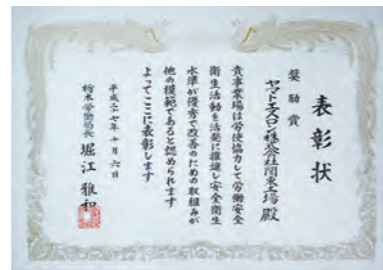 表彰状
奨励賞
ヤマトエスロン株式会社関東工場殿
貴事業場は労使協力して労働安全
衛生活動を活発に推進し安全衛生
水準が優秀で改善のための取組みが
他の模範であると認められます
よってここに表彰します
平成二十七年十月六日
栃木労働局長 堀江雅和